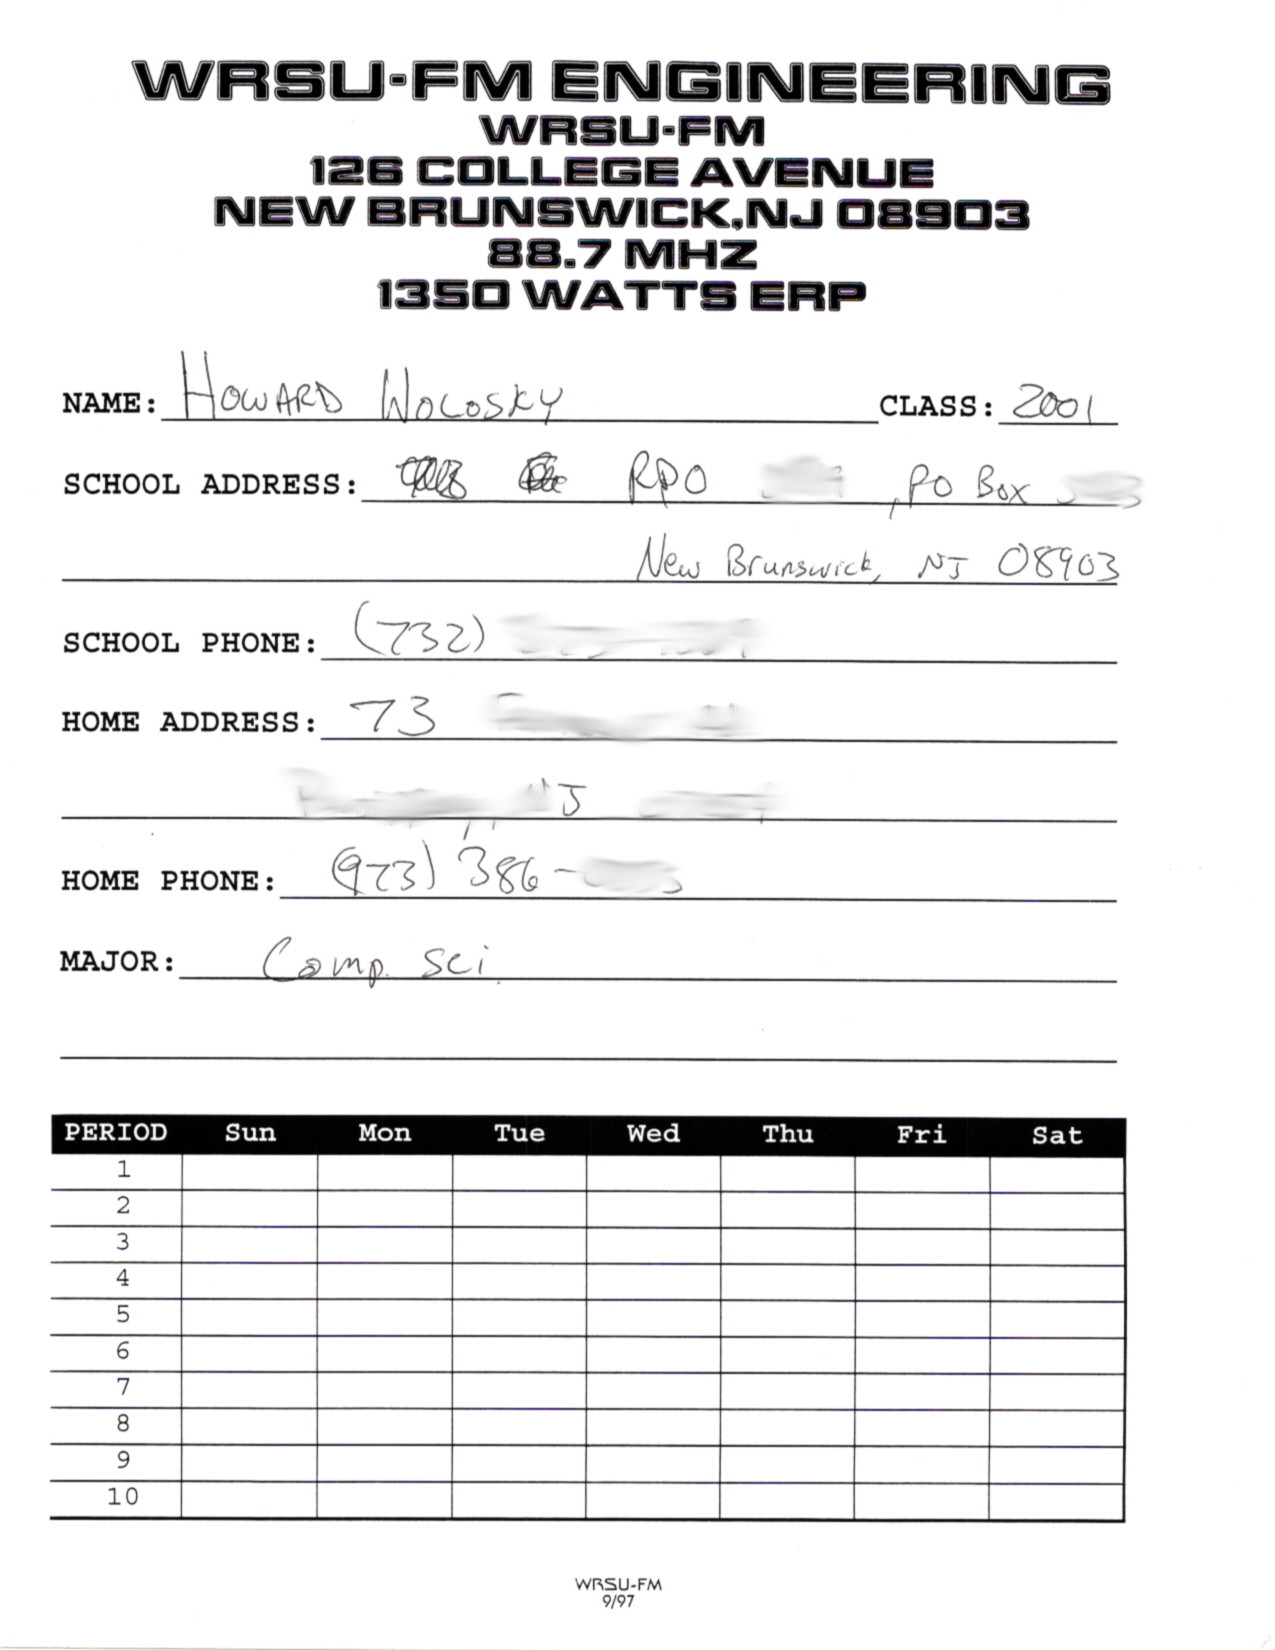 WRSU-FM ENGINEERING
WRSU-FM
126 COLLEGE AVENUE
NEW BRUNSWICK, NJ 08903
88.7 MHZ
1350 WATTS ERP
NAME: HOWARD WOLOSKY CLASS: 2001
SCHOOL ADDRESS: RPO , PO Box
New Brunswick, NJ 08903
SCHOOL PHONE: (732)
HOME ADDRESS: 73
NJ
HOME PHONE: (973) 386-
MAJOR: Comp. Sci.
PERIOD Sun Mon Tue Wed Thu Fri Sat
1
2
3
4
5
6
7
8
9
10
WRSU-FM
9/97